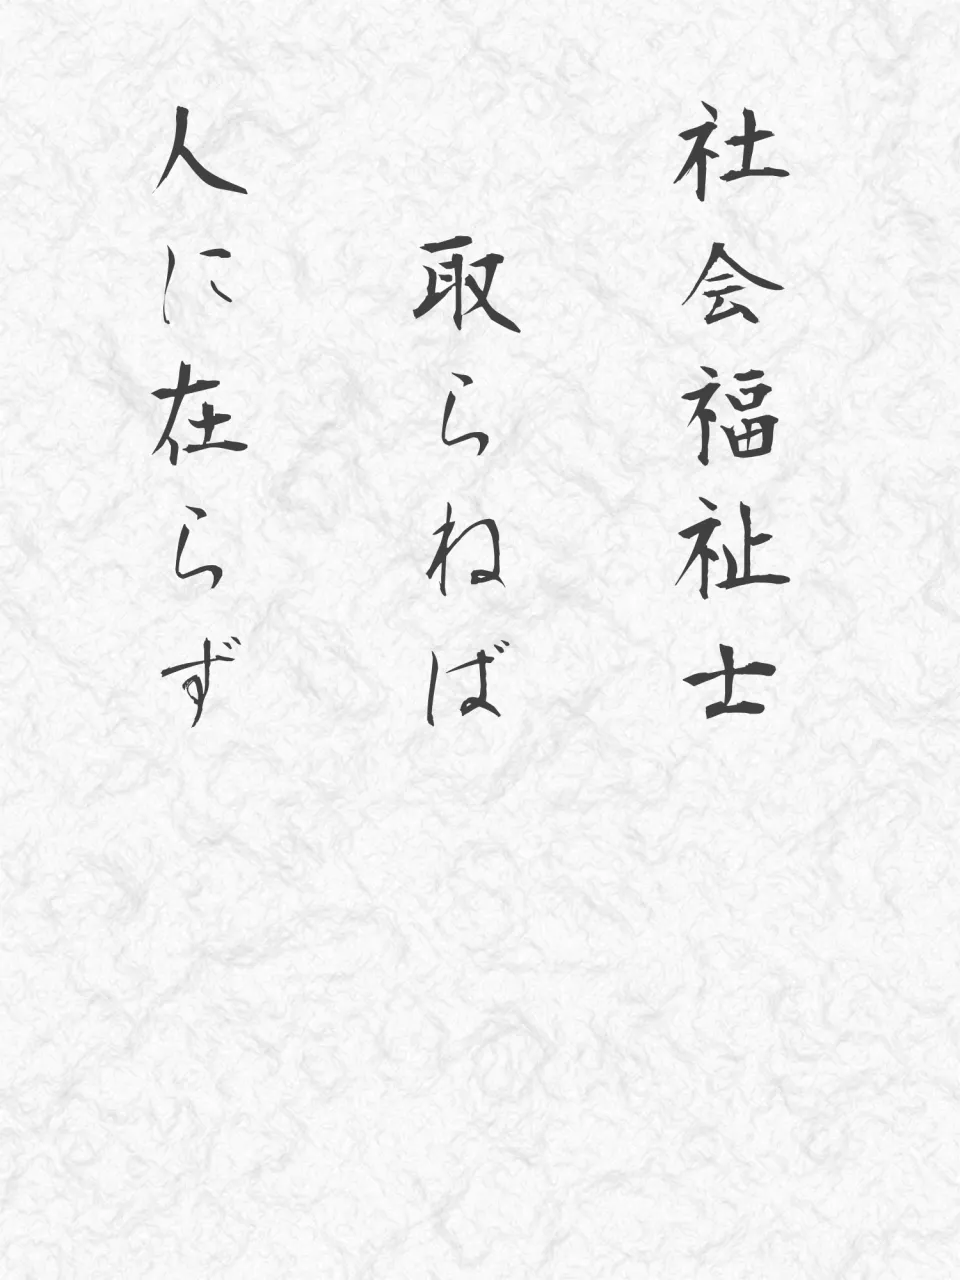 社会福祉士
取らねば
人に在らず